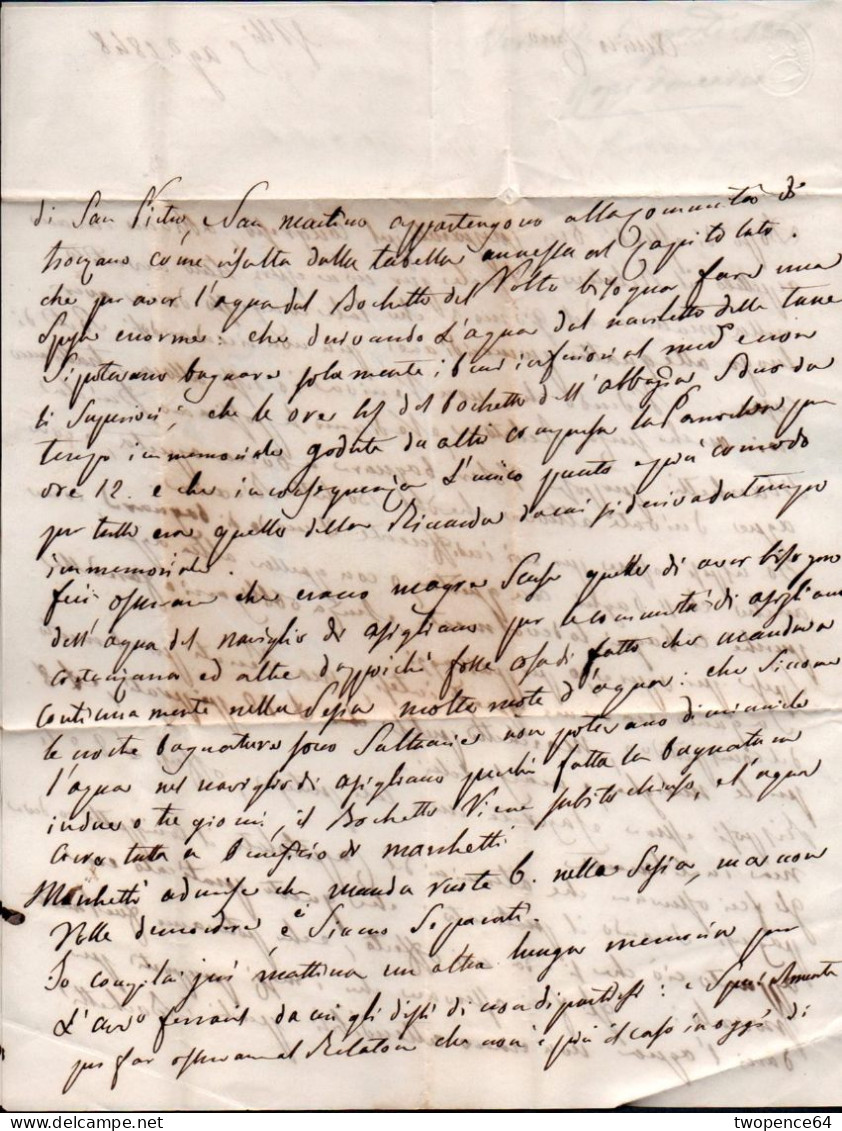 di San Pietro, San martino appartengono alla Communità di
tronzano come risulta dalla tabella annessa al Capitolato.
che per aver l'aqua dal Bochetto del Volto bisogna fare una
Spesa enorme: che derivando L'aqua dal naviletto delle tane
Si potevano bagnare solamente i beni inferiori al med.o e non
li Superiori; che le ore del bochetto dell'Abbazia Sono da
tempo immemoriale godute da altri compresa la Parochia per
ore 12. e che in conseguenza L'unico punto e più comodo
per tutti era quello della Riccarda da cui si deriva da tempo
immemoriale.
feci osservare che erano magre Scuse quelle di aver bisogno
dell'aqua del naviglio di asigliano per le comunità di asigliano
Costanzana ed altre dappoiché fosse cosa di fatto che mandava
Continuamente nella Sesia molte ruote d'aqua: che Siccome
le nostre bagnature sono Saltuarie non potevano diminuire
l'aqua nel naviglio di asigliano perché fatta la bagnatura
in due o tre giorni, il Bochetto Viene subito chiuso, e l'aqua
corre tutta a beneficio di Marchetti.
Marchetti admise che manda ruote 6. nella Sesia, ma non
Volle e Siamo Separati.
Io compilai jeri mattina un altra lunga memoria per
L'avv.o ferraris da cui gli dissi di non dipartirsi: e Specialmente
per far osservare al Relatore che non è più il caso in oggi di
twopence64